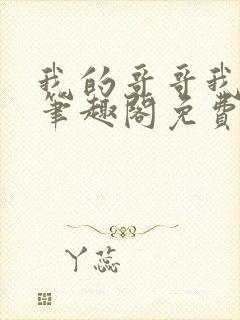 我的哥哥我
笔趣阁免費
丫蕊